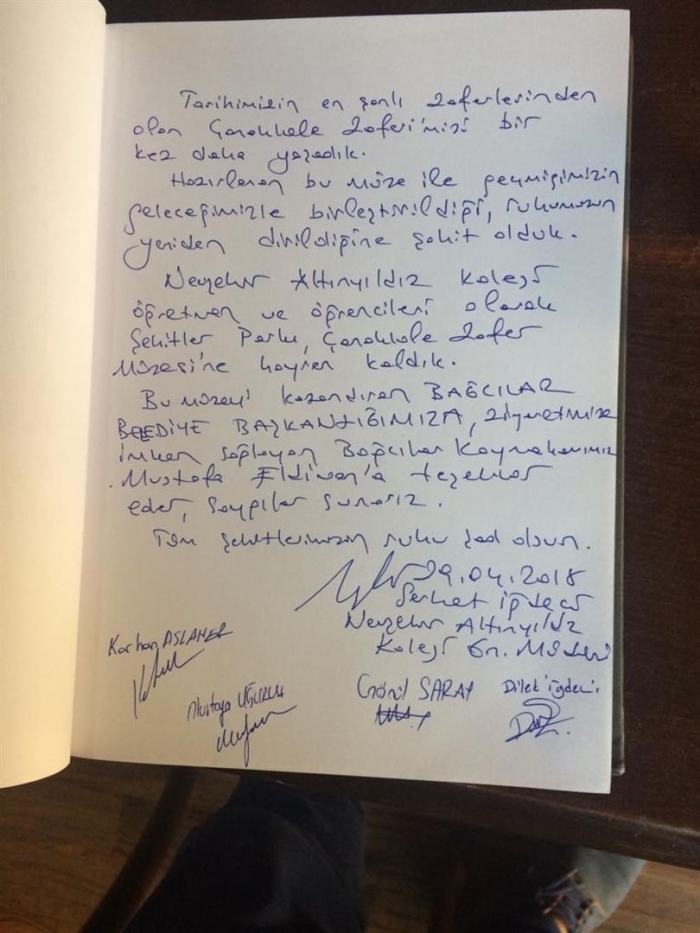 Tarihimizin en şanlı zaferlerinden
olan Çanakkale Zaferi'mizi bir
kez daha yaşadık.
Hazırlanan bu müze ile geçmişimizin
geleceğimizle birleştirildiği, ruhumuzun
yeniden dirildiğine şahit olduk.
Nevşehir Altınyıldız Koleji
öğretmen ve öğrencileri olarak
Şehitler Parkı, Çanakkale Zafer
Müzesi'ne hayran kaldık.
Bu müzeyi kazandıran BAĞCILAR
BELEDİYE BAŞKANLIĞIMIZA, ziyaretimize
imkan sağlayan Bağcılar Kaymakamımız
Mustafa Eldivan'a teşekkür
eder, saygılar sunarız.
Tüm şehitlerimizin ruhu şad olsun.
29.04.2018
Serhat İğdeci
Nevşehir Altınyıldız
Koleji Gn. Müdürü
Korhan ASLANER
Mustafa UĞURLU
Gönül SARAY Dilek iğdeci